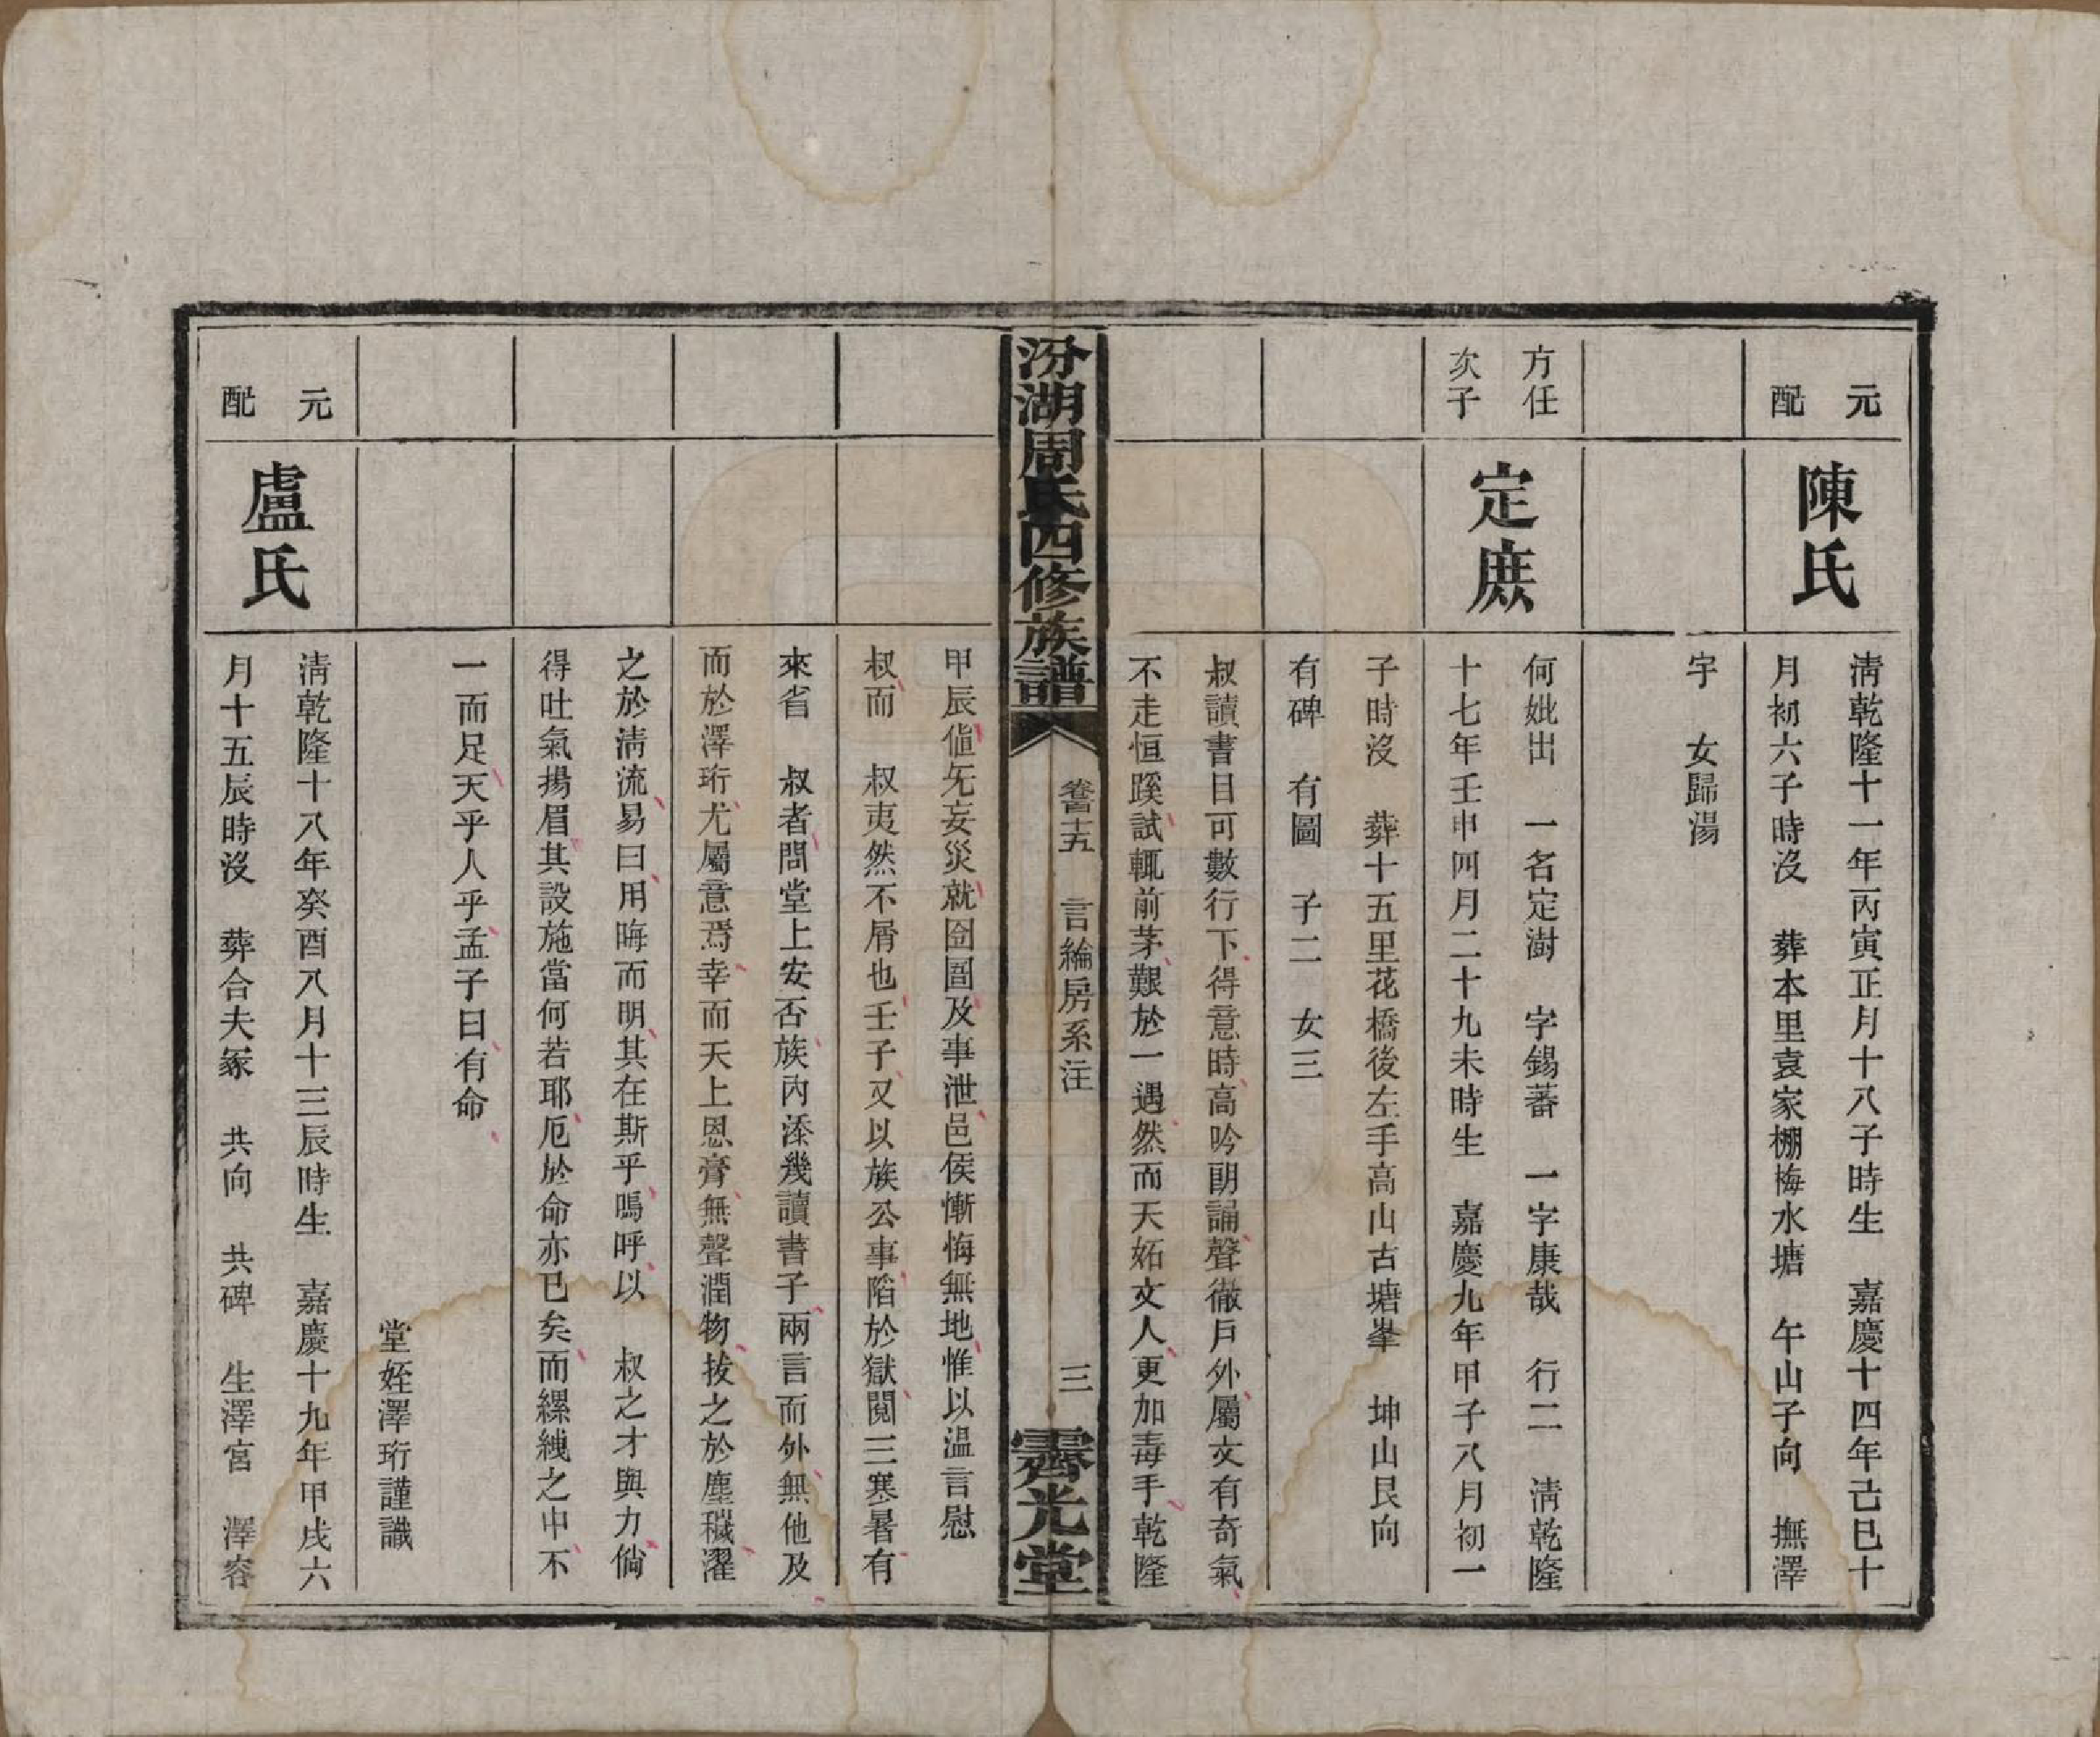 元配
陳氏
淸乾隆十一年丙寅正月十八子時生　嘉慶十四年己巳十
月初六子時沒　葬本里袁家棚梅水塘　午山子向　撫澤
宇　女歸湯
方任
次子
定庶
何妣出　一名定澍　字錫蕃　一字康哉　行二　淸乾隆
十七年壬申四月二十九未時生　嘉慶九年甲子八月初一
子時沒　葬十五里花橋後左手高山古塘峯　坤山艮向
有碑　有圖　子二　女三
叔讀書目可數行下得意時高吟朗誦聲徹戶外屬文有奇氣
不走恒蹊試輒前茅艱於一遇然而天妬文人更加毒手乾隆
汾湖周氏四修族譜
卷百十五　言綸房系注
三
霽光堂
甲辰値旡妄災就囹圄及事泄邑侯慚悔無地惟以温言慰
叔而　叔夷然不屑也壬子又以族公事陷於獄閱三寒暑有
來省　叔者問堂上安否族內添幾讀書子兩言而外無他及
而於澤珩尤屬意焉幸而天上恩膏無聲潤物拔之於塵穢濯
之於淸流易曰用晦而明其在斯乎嗚呼以　叔之才與力倘
得吐氣揚眉其設施當何若耶厄於命亦已矣而縲絏之中不
一而足天乎人乎孟子曰有命
堂姪澤珩謹識
元配
盧氏
淸乾隆十八年癸酉八月十三辰時生　嘉慶十九年甲戌六
月十五辰時沒　葬合夫冢　共向　共碑　生澤宮　澤容